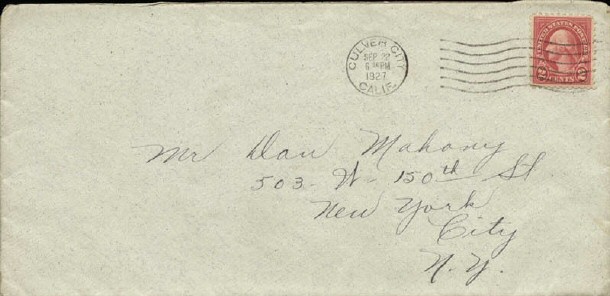 CULVER CITY
SEP 22
6 PM
1927
CALIF.
UNITED STATES POSTAGE
2 CENTS 2
Mr Dan Mahony
503 - W - 150th St
New York
City
N.Y.